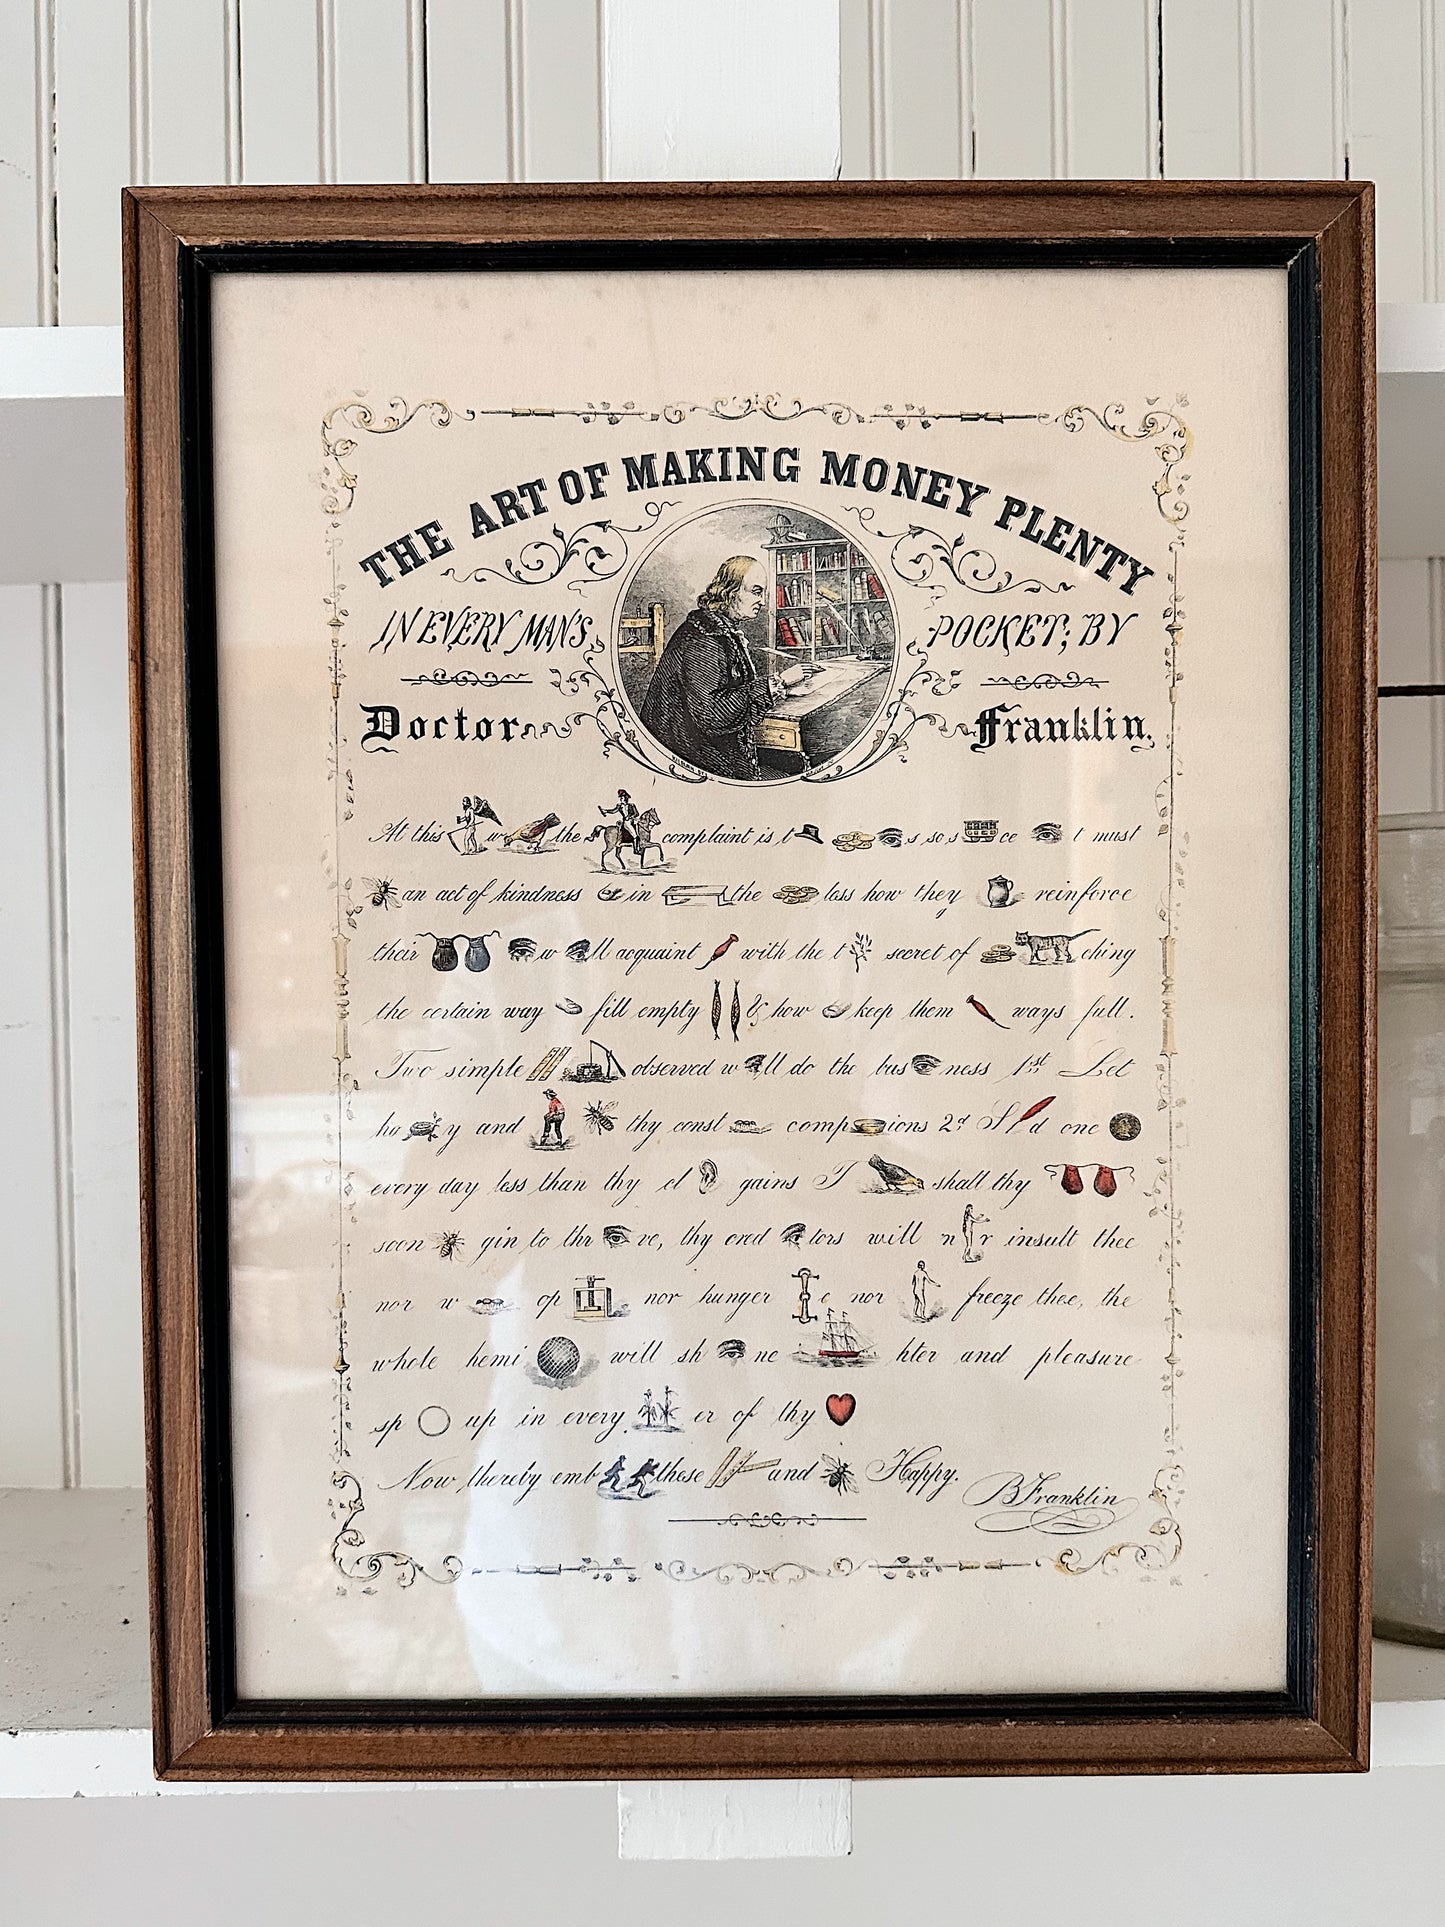 THE ART OF MAKING MONEY PLENTY
IN EVERY MAN'S POCKET; BY
Doctor Franklin.
At this w the complaint is t s so s ce t must
an act of kindness in the less how they reinforce
their w ll acquaint with the t secret of ching
the certain way fill empty & how keep them ways full.
Two simple observed w ll do the bus ness 1st Let
ho y and thy const comp ions 2d S d one
every day less than thy cl gains T shall thy
soon gin to thr ve, thy cred tors will n r insult thee
nor w op nor hunger e nor freeze thee, the
whole hemi will sh ne hter and pleasure
sp up in every er of thy
Now thereby emb these and Happy.
BFranklin